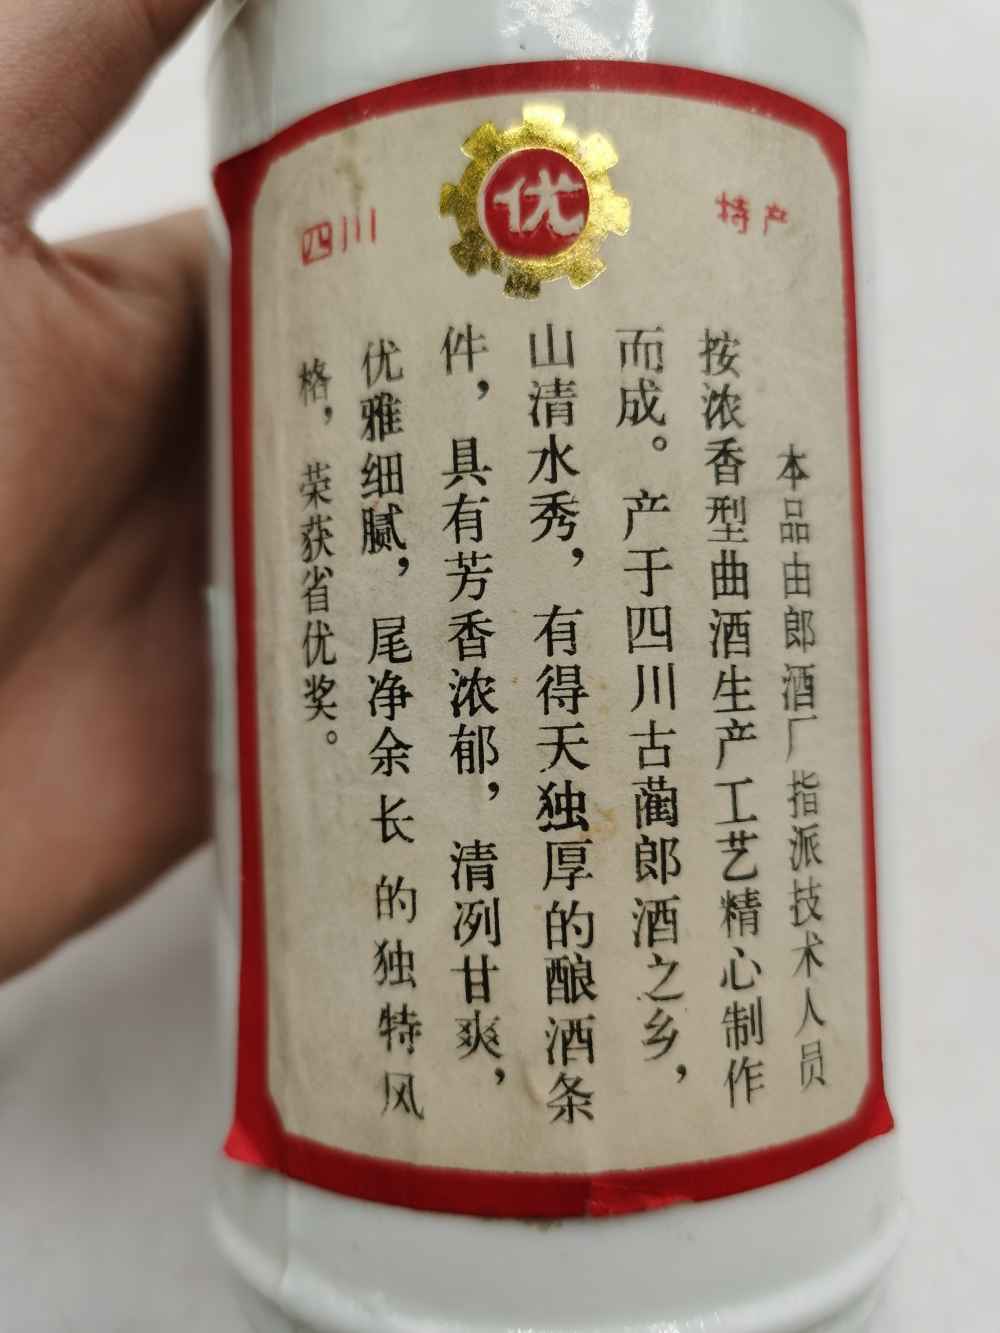 四川
优
特产
本品由郎酒厂指派技术人员
按浓香型曲酒生产工艺精心制作
而成。产于四川古蔺郎酒之乡，
山清水秀，有得天独厚的酿酒条
件，具有芳香浓郁，清冽甘爽，
优雅细腻，尾净余长的独特风
格，荣获省优奖。